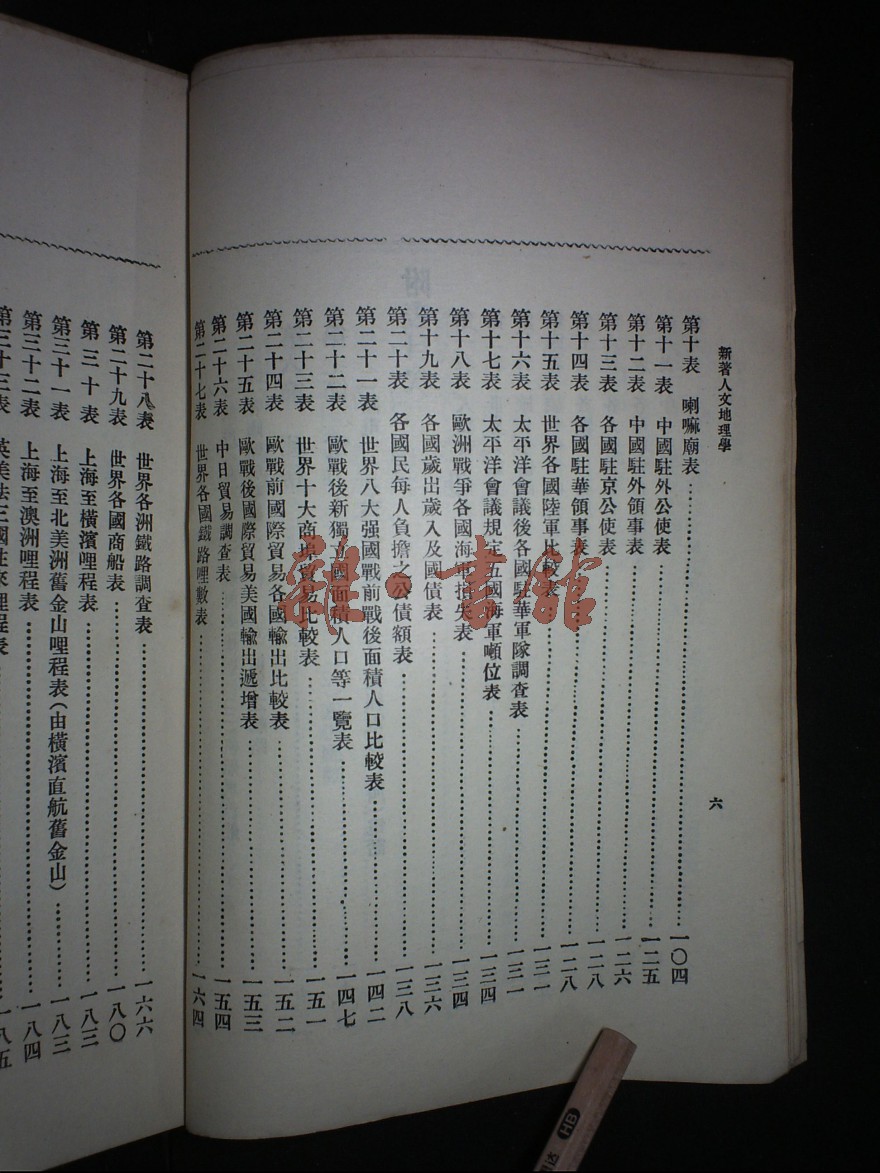 新著人文地理學
六
第十表 喇嘛廟表 一〇四
第十一表 中國駐外公使表 一二五
第十二表 中國駐外領事表 一二六
第十三表 各國駐京公使表 一二八
第十四表 各國駐華領事表 一二八
第十五表 世界各國陸軍比較表 一三一
第十六表 太平洋會議後各國駐華軍隊調查表 一三一
第十七表 太平洋會議規定五國海軍噸位表 一三四
第十八表 歐洲戰爭各國海軍損失表 一三四
第十九表 各國歲出歲入及國債表 一三六
第二十表 各國民每人負擔之公債額表 一三八
第二十一表 世界八大强國戰前戰後面積人口比較表 一四二
第二十二表 歐戰後新獨立國面積人口等一覽表 一四七
第二十三表 世界十大商埠貿易比較表 一五一
第二十四表 歐戰前國際貿易各國輸出比較表 一五二
第二十五表 歐戰後國際貿易美國輸出遞增表 一五三
第二十六表 中日貿易調查表 一五四
第二十七表 世界各國鐵路哩數表 一六四
第二十八表 世界各洲鐵路調查表 一六六
第二十九表 世界各國商船表 一八〇
第三十表 上海至橫濱哩程表 一八三
第三十一表 上海至北美洲舊金山哩程表(由橫濱直航舊金山) 一八三
第三十二表 上海至澳洲哩程表 一八四
第三十三表 英美法三國往來哩程表 一八五
雜·書館
HB